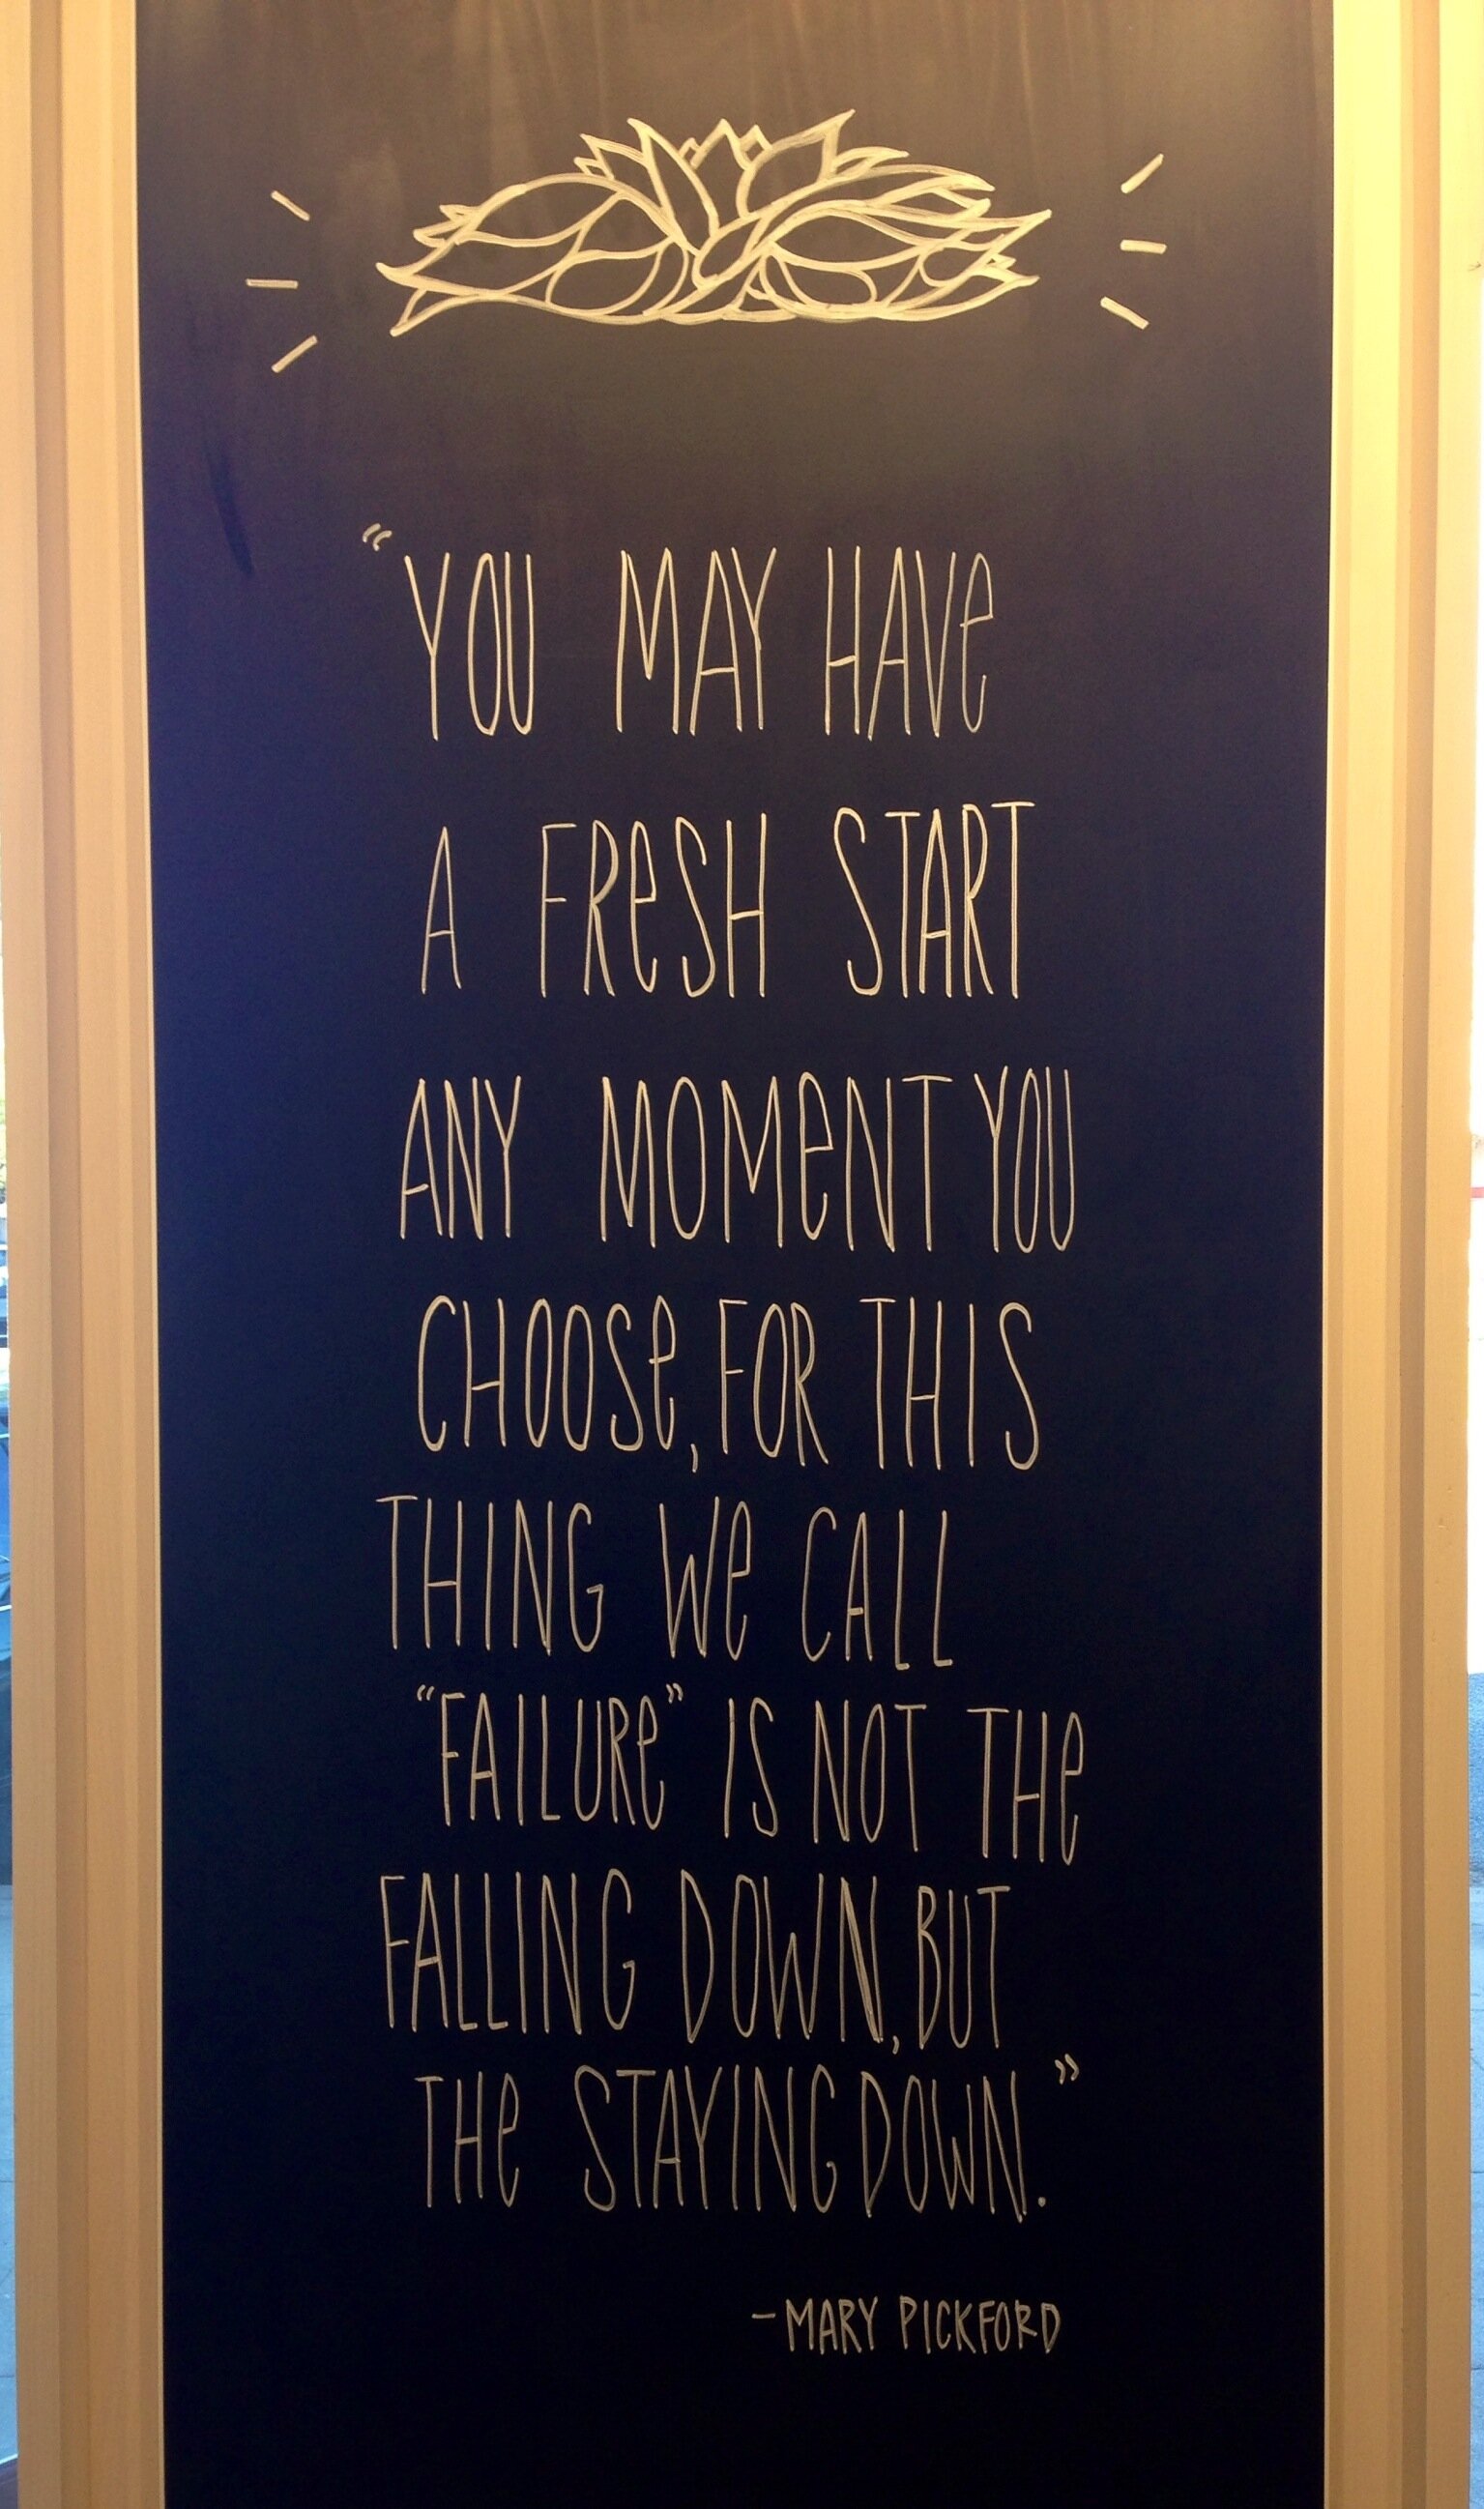 “YOU MAY HAVe
A FReSH START
ANY MOMeNT YOU
CHOOSe, FOR THIS
THING We CALL
“FAILURe” IS NOT THe
FALLING DOWN, BUT
THe STAYING DOWN.”
-MARY PICKFORD